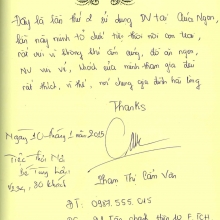 Đây là lần thứ 2 sử dụng DV tại Quá Ngon,
lần này mình tổ chức tiệc thôi nôi con trai,
rất vui vì không khí ấm cúng, đồ ăn ngon,
NV vui vẻ, khách của mình tham gia đều
rất thích, vì thế, nói chung gia đình hài lòng
Thanks
Ngày 10 tháng 1 năm 2015
Tiệc Thôi Nôi
30 khách
Phạm Thị Cẩm Vân
ĐT: 0987. 555. 015
10 F. TCH